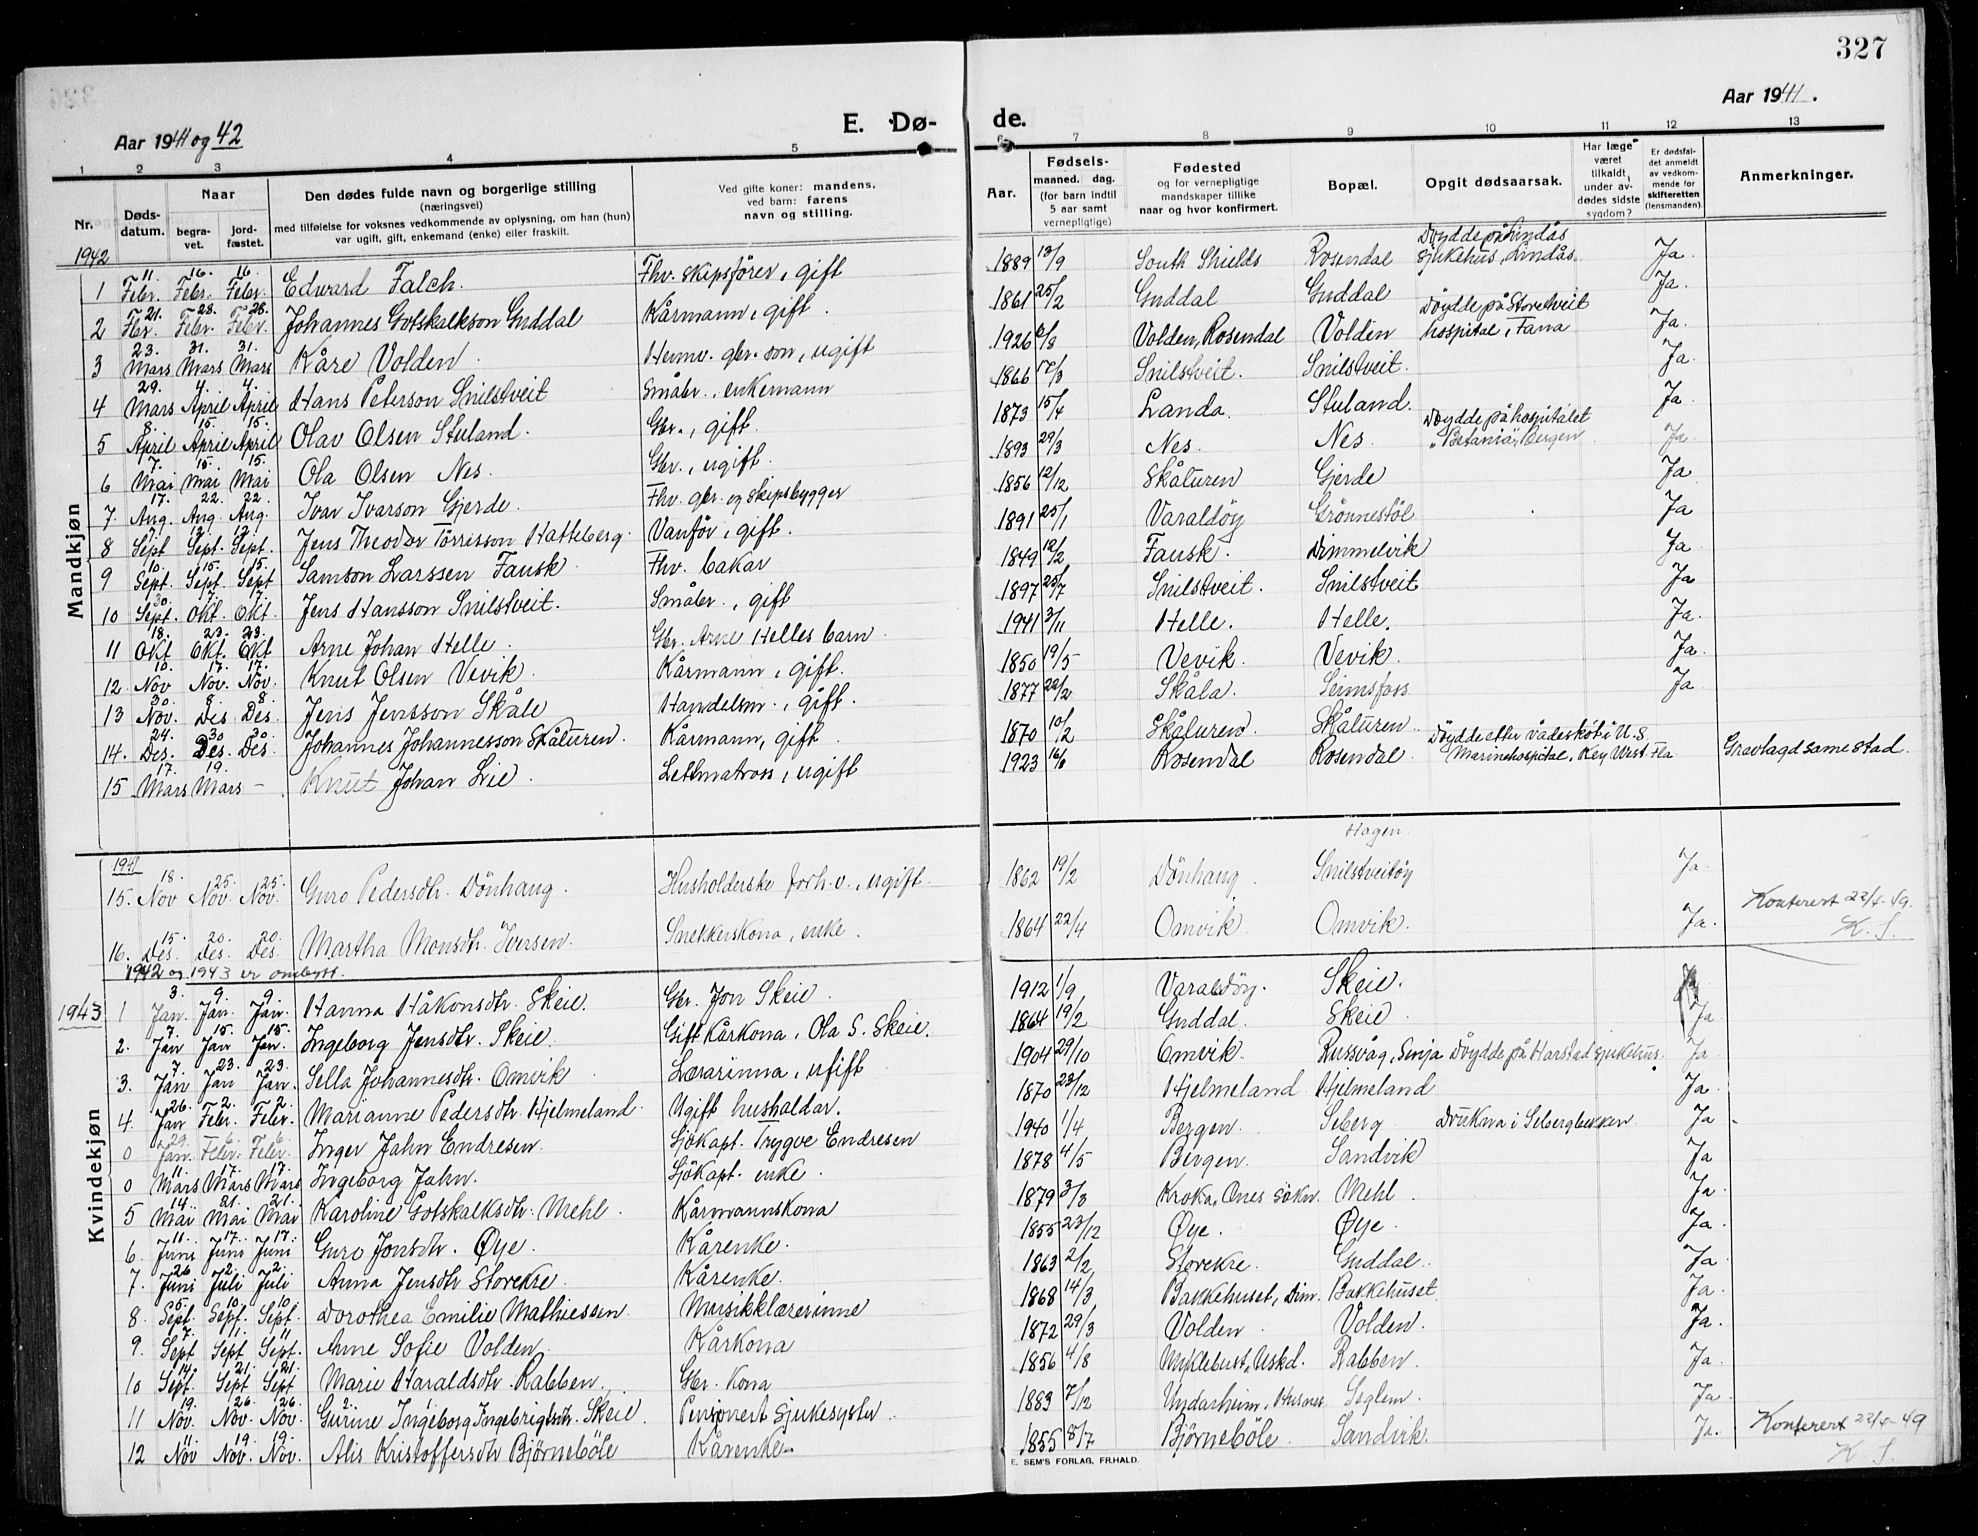 327
Aar 1941 og 42
E. Dø-
de.
Aar 1941.
1 2 3 4 5 6 7 8 9 10 11 12 13
Nr. Døds-datum. Naar begra-vet. jord-fæstet. Den dødes fulde navn og borgerlige stilling (næringsvei) med tilføielse for voksnes vedkommende av oplysning, om han (hun) var ugift, gift, enkemand (enke) eller fraskilt. Ved gifte koner: mandens, ved barn: farens navn og stilling. Aar. Fødsels- maaned. dag. (for barn indtil 5 aar samt vernepligtige) Fødested og for vernepligtige mandskaper tillike naar og hvor konfirmert. Bopæl. Opgit dødsaarsak. Har læge været tilkaldt under av-dødes sidste sygdom? Er dødsfal-det anmeldt av vedkom-mende for skifteretten (lensmanden). Anmerkninger.
1942
Mandkjøn
1 11. Febr. 16. Febr. 16. Febr. Edward Falch. Fhv. skipsfører, gift 1889 13/9 South Shields Rosendal Døydde på Lindås sjukehus, Lindås. Ja
2 21. Febr. 28. Febr. 28. Febr. Johannes Gotskalkson Guddal Kårmann, gift. 1861 25/2 Guddal Guddal Ja.
3 23. Mars 31. Mars 31. Mars Kåre Volden. Heimv. gbr. son, ugift 1926 6/8 Volden, Rosendal Volden Døydde på Storetveit hospital, Fana Ja.
4 29. Mars 4. April 4. April Hans Peterson Snilstveit Småbr., enkemann 1866 17/3 Snilstveit. Snilstveit. Ja.
5 8. April 15. April 15. April Olav Olsen Stuland. Gbr., gift. 1873 15/4 Landa. Stuland. Ja.
6 7. Mai 15. Mai 15. Mai Ola Olsen Nes. Gbr., ugift. 1893 29/3 Nes. Nes. Døydde på hospitalet "Betania", Bergen Ja
7. 17. Aug. 22. Aug. 22. Aug. Ivar Ivarson Gjerde. Fhv. gbr. og skipsbygger 1856 12/12 Skåluren Gjerde Ja
8 7. Sept 12. Sept. 12. Sept. Jens Theodor Torrisson Hatteberg. Vanfør, gift. 1891 25/1 Varaldöy Grönnestöl Ja
9 10. Sept. 15. Sept. 15. Sept Samson Larssen Fausk. Fhv. bakar 1849 12/2 Fausk. Dimmelvik Ja
10 30. Sept. 7. Okt. 7. Okt. Jens Hansson Snilstveit. Småbr., gift 1897 25/7 Snilstveit. Snilstveit Ja
11 18. Okt 23. Okt. 23. Okt Arne Johan Helle. Gbr. Arne Helles barn. 1941 3/11 Helle. Helle. Ja.
12. 10. Nov 17. Nov. 17. Nov. Knut Olsen Vevik. Kårmann, gift. 1850 19/5 Vevik. Vevik. Ja.
13 30. Nov. 8. Des 8. Des. Jens Jensson Skåle Handelsm., gift. 1877 22/2 Skåla. Seimsfoss Ja
14. 24. Des. 30 Des. 30 Des. Johannes Johannesson Skåluren. Kårmann, gift. 1870 10/2 Skåluren. Skåluren.
15 17. Mars 19. Mars – Knut Johan Lie. Lettmatros, ugift 1923 16/6 Rosendal Rosendal. Døydde etter vådeskot i U.S. Marinehospital, Key West Fla Gravlagd same stad.
1941
15. 18. Nov 25. Nov. 25. Nov. Guro Pedersdtr. Dönhaug. Husholderske forh.v., ugift. 1862 19/2 Dönhaug. Hagen Snilstveitöy Ja.
16. 15. Des. 20. Des. 20. Des. Martha Monsdtr. Iversen. Snekkerskona, enke. 1864 22/4 Omvik. Omvik. Ja. Konferert 22/6-49. K. S.
1942 og 1943 er ombytt.
Kvindekjøn
1943
1 3. Jan. 9. Jan. 9. Jan. Hanna Håkonsdtr. Skeie. Gbr. Jon Skeie. 1912 1/9 Varaldöy. Skeie. Ja
2. 7. Jan 15. Jan 15. Jan. Ingeborg Jensdtr. Skeie. Gift Kårkona, Ola S. Skeie. 1864 19/2 Guddal. Skeie Ja
3. 7. Jan 23. Jan 23. Jan. Sella Johannesdtr. Omvik Lærarinna, ugift. 1904 29/10 Omvik. Russvåg, Senja Døydde på Harstad sjukehus. Ja
4. 26. Jan 2. Febr. 2. Febr. Marianne Pedersdtr. Hjelmeland. Ugift husholdar. 1870 23/12 Hjelmeland Hjelmeland Ja
0 29. Jan. 6. Febr. 6. Febr. Inger Jahn Endresen. Sjökapt. Trygve Endresen 1940 1/4 Bergen. Seberg Drukna i Sebergbekken Ja
0 11. Mars 17. Mars 17. Mars Ingeborg Jahn. Sjökapt. enke. 1878 4/5 Bergen. Sandvik Ja
5 14. Mai 21. Mai 21. Mai Karoline Gotskalksdtr. Mehl. Kårmannskona 1879 3/8 Kroka, Ones sokn. Mehl. Ja.
6. 11. Juni 17. Juni 17. Juni Guro Jonsdtr. Øye. Kårenke. 1855 23/12 Øye. Øye. Ja.
7. 26 Juni 2. Juli 2. Juli Anna Jensdtr Storekre. Kårenke. 1863 2/2 Storekre. Guddal. Ja
8. 5. Sept. 10. Sept. 10. Sept. Dorothea Emilie Mathiessen. Musikklærerinne 1868 14/3 Bakkehuset, Dim. Bakkehuset. Ja.
9. 7. Sept 11. Sept 11. Sept. Anne Sofie Volden. Kårkona 1872 29/3 Volden. Volden. Ja.
10 14. Sept. 21. Sept 21. Sept Marie Haraldsdtr. Rabben. Gbr. Kona 1856 4/8 Myklebust, Uskd. Rabben. Ja.
11 19. Nov. 26. Nov. 26. Nov. Gurine Ingeborg Ingebrigtsdtr. Skeie. Pensjonert sjukesyster. 1883 7/12 Undarheim, Husnes Seglem. Ja
12 11. Nov 19. Nov. 19. Nov. Alis Kristoffersdtr Bjørnebøle Kårenke. 1855 8/7 Bjørnebøle. Sandvik. Ja. Konferert 22/6-49 K. S.
E. SEM'S FORLAG, FR.HALD.